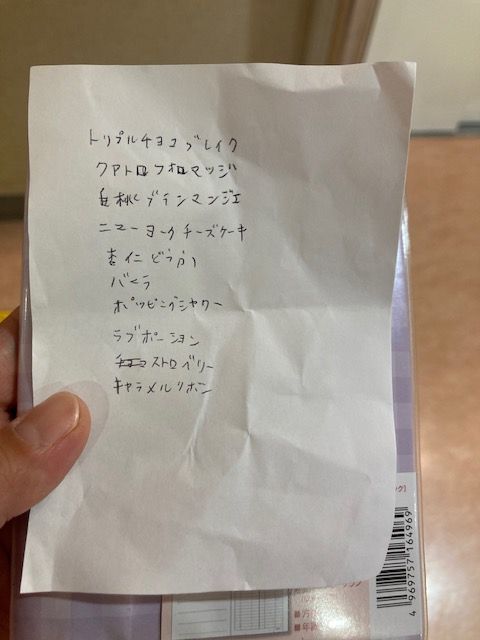 トリプルチョコブレイク
クアトロフォロマッジ
白桃ブランマンジェ
ニューヨークチーズケーキ
杏仁どうふ
バニラ
ポッピングシャワー
ラブポーション
ストロベリー
キャラメルリボン
4 969757 164969